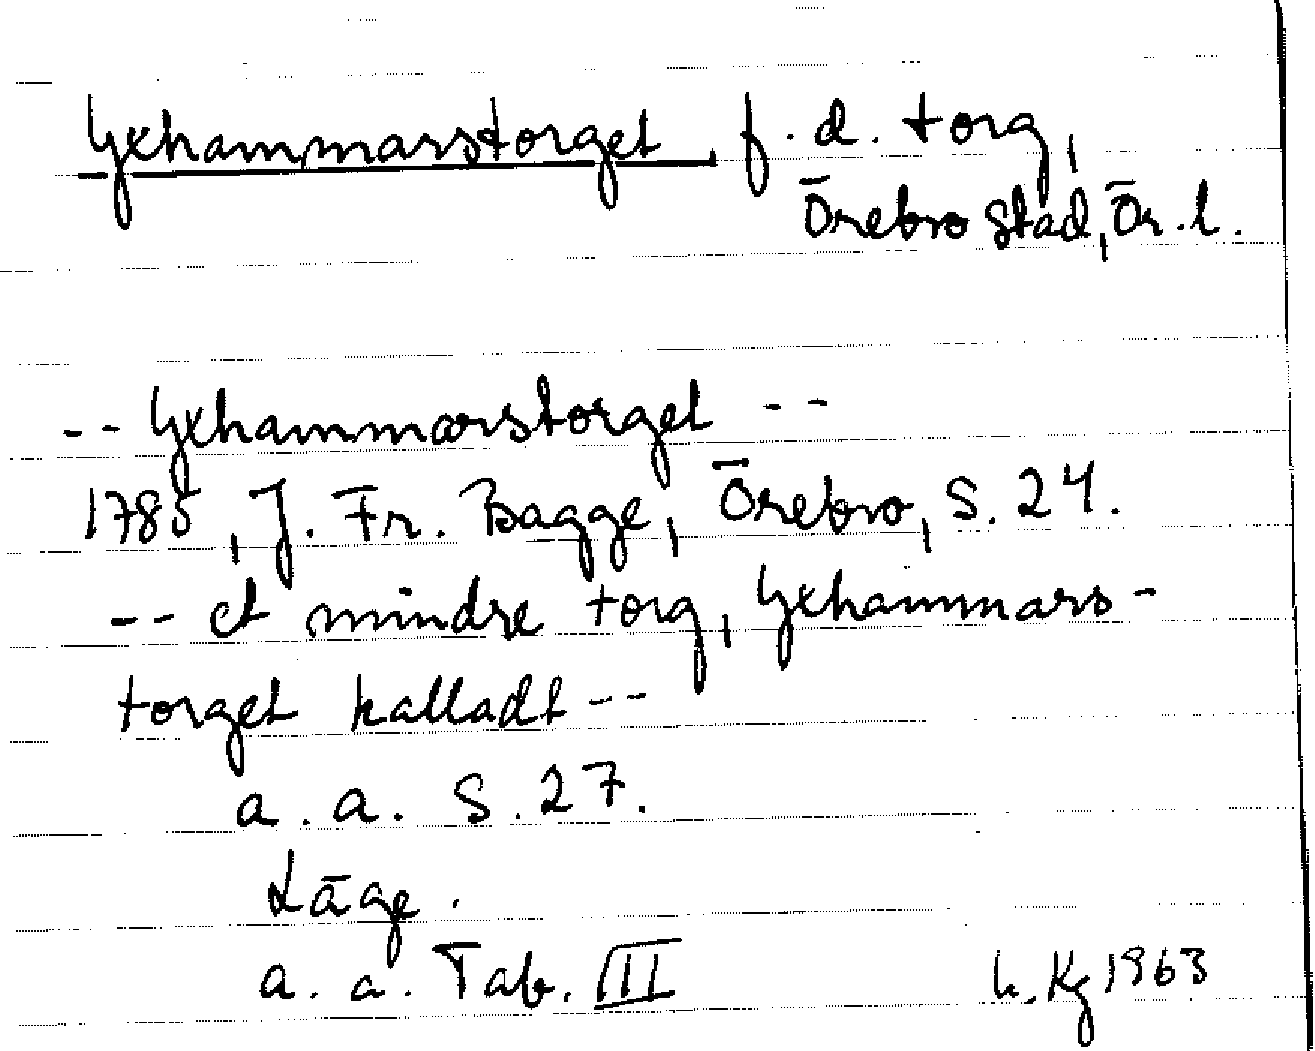 Yxhammarstorget, f.d. torg,
Örebro stad, Ör.l.
-- Yxhammarstorget --
1785, J. Fr. Bagge, Örebro, s. 24.
-- et mindre torg, Yxhammars-
torget kalladt --
a.a. s. 27.
Läge.
a.a. Tab. III
h. Kg 1963